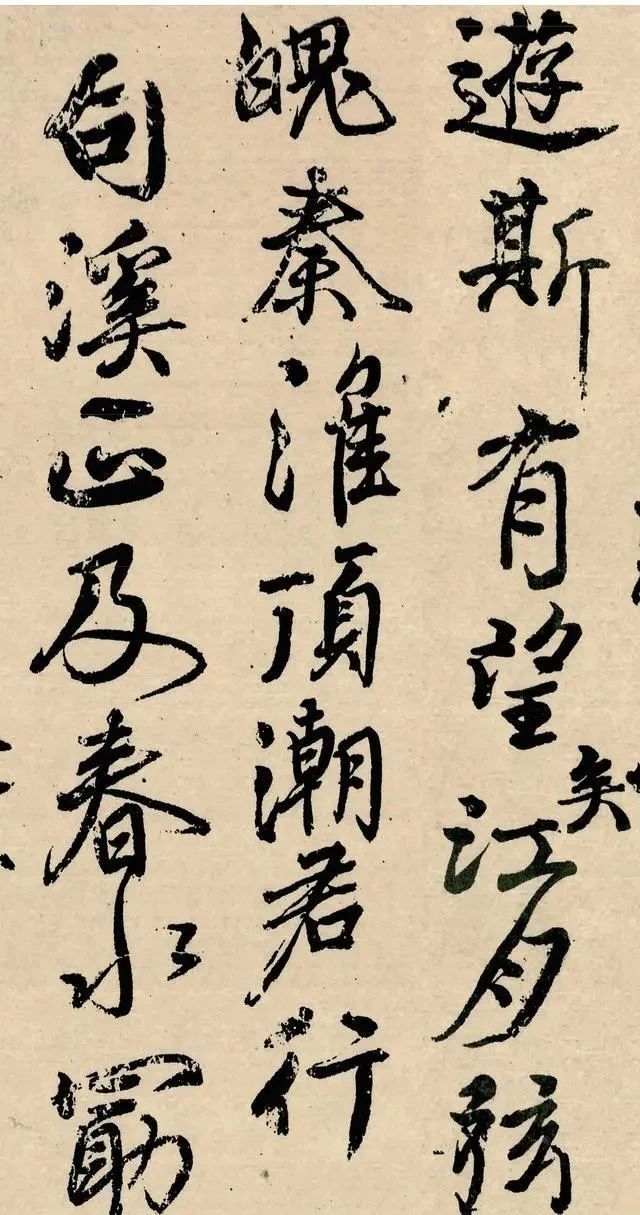 矣
遊斯有望江月弦
魄秦淮頂潮君行
句溪正及春水勗